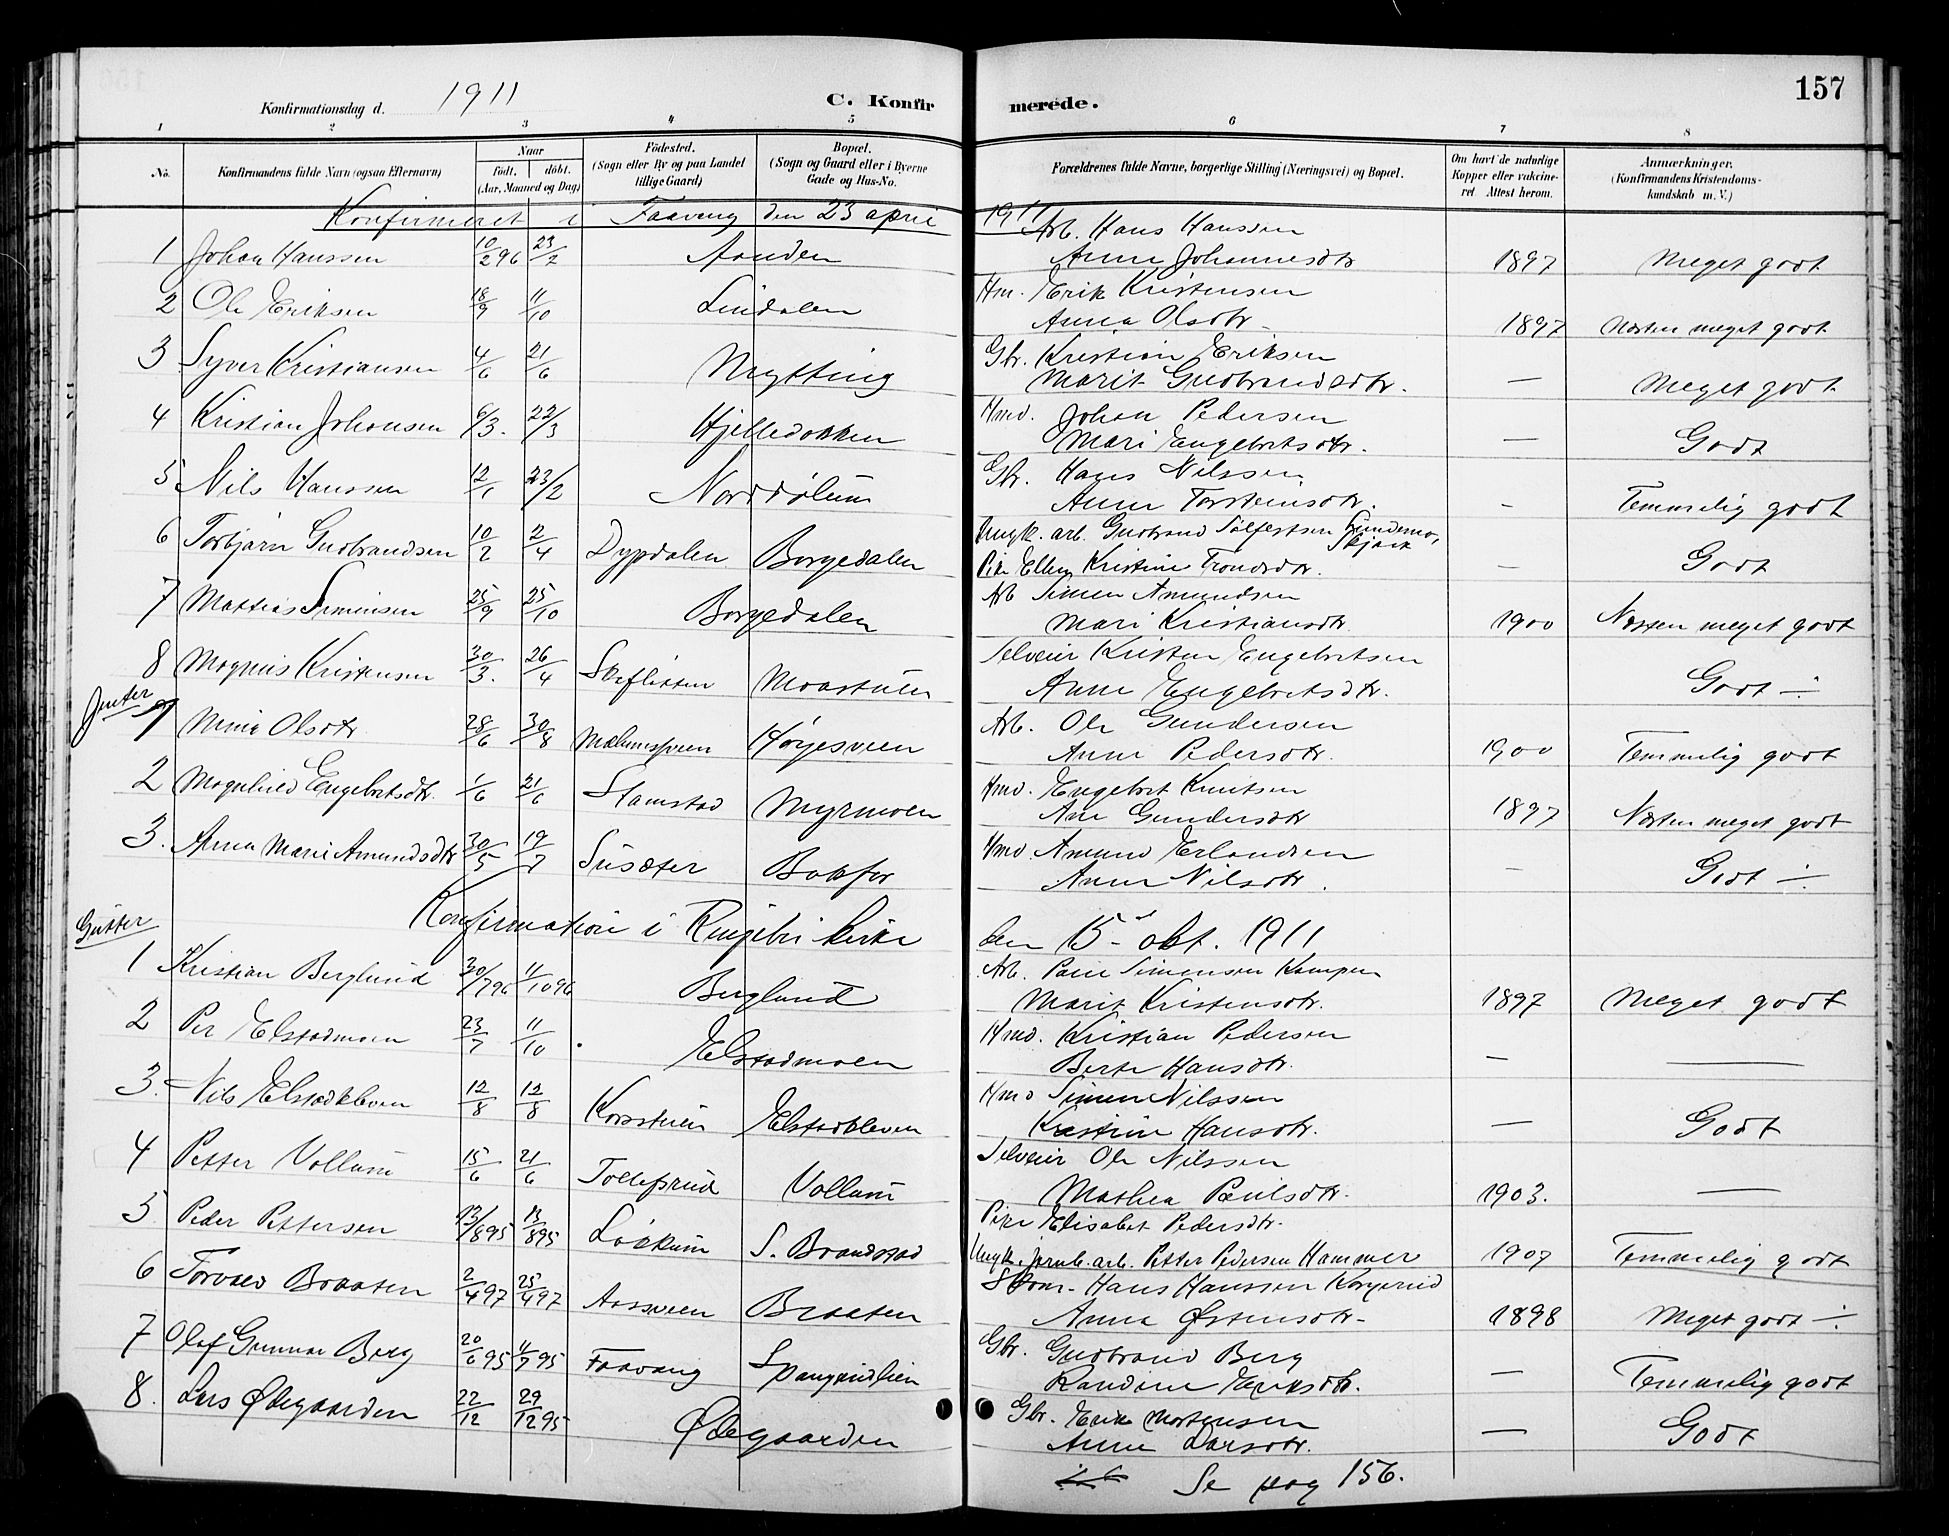 157
Konfirmationsdag d. 1911 C. Konfir merede.
1 2 3 4 5 6 7 8
No. Konfirmandens fulde Navn (ogsaa Efternavn) Naar født, døbt. (Aar, Maaned og Dag) Fødested. (Sogn eller By og paa Landet tillige Gaard) Bopæl. (Sogn og Gaard eller i Byerne Gade og Hus-No. Forældrenes fulde Navne, borgerlige Stilling (Næringsvei) og Bopæl. Om havt de naturlige Kopper eller vakcineret. Attest herom. Anmærkninger. (Konfirmandens Kristendomskundskab m. V.)
Konfirmeret i Faavang den 23 april 1911
Arb. Hans Hanssen
1 Johan Hanssen 10/2 96 23/2 Aanden Anne Johannesdtr 1897 Meget godt
Hm. Erik Kristensen
2 Ole Eriksen 18/9 11/10 Lindalen Anna Olsdtr 1897 Næsten meget godt
Gbr. Kristian Eriksen
3 Syver Kristiansen 4/6 21/6 Mytting Marit Gudbrandsdtr. — Meget godt
Hmd. Johan Pedersen
4 Kristian Johansen 6/3. 22/3 Hjelledokken Mari Engebretsdtr. — Godt
Gbr. Hans Nilssen
5 Nils Hanssen 12/1 23/2 Norddølum Anne Torsteinsdtr. - Temmelig godt
Ungk. arb. Gudbrand Sølfestsen Lundemo, Skjaak
6 Torbjørn Gudbrandsen 10/2 2/4 Dypdalen Borgedalen Pike Ellen Kristine Trondsdtr. — Godt
Arb Simen Amundsen
7 Mattias Simensen 25/9 25/10 Borgedalen Mari Kristiansdtr 1900 Næsten meget godt
Selveier Kristen Engebretsen
8 Magnus Kristensen 30/3. 26/4 Moastuen Anne Engebretsdtr. Godt ÷
Jenter
Arb. Ole Gundersen
1 Mina Olsdtr 28/6 30/8 Mælumsveen Høyesveen Anne Pedersdtr. 1900 Temmelig godt
Hmd. Engebret Knutsen
2 Magnhild Engebretsdtr. 1/6 21/6 Stamstad Myrmoen Ane Gundersdtr 1897 Næsten meget godt
Hmd. Amund Erlandsen
3. Anna Marie Amundsdtr 30/5 19/7 Susæter Bakfor Anne Nilsdtr. — Godt ÷
Gutter
Konfirmation i Ringebu kirke den 15 - okt. 1911
Arb. Paul Simensen Kampen
1 Kristian Berglund 30/7 96 11/10 96 Berglund Marit Kristensdtr. 1897 Meget godt
Hmd. Kristian Pedersen
2 Per Elstadmoen 23/7 11/10 Elstadmoen Berte Hansdtr. — —
Hmd Simen Nilssen
3. Nils Elstadkleven 12/8 12/8 Korsstuen Elstadkleven Kristine Hansdtr. — Godt
Selveier Ole Nilssen
4 Petter Vollum 15/6 21/6 Tollefsrud Vollum Mathea Paulsdtr. 1903. —
Pike Elisabet Pedersdtr.
5 Peder Pettersen 13/8 95 Løkkum S. Brandstad Ungk. jernb. arb. Petter Pedersen Hammer 1907 Temmelig godt
Skom. Hans Hanssen Korgerud
6 Torvald Braaten 2/4 97 25/4 97 Aassveen Braaten Anna Østensdtr - 1898 Meget godt ÷
Gbr. Gudbrand Berg
7 Olaf Gunnar Berg 20/6 95 4/7 95 Faavang Spangrudlien Randine Eriksdtr. — Temmelig godt
Gbr. Erik Mortensen
8. Lars Ødegaarden 22/12 29/12 95 Ødegaarden Anne Larsdtr. — Godt
Se pag 156.